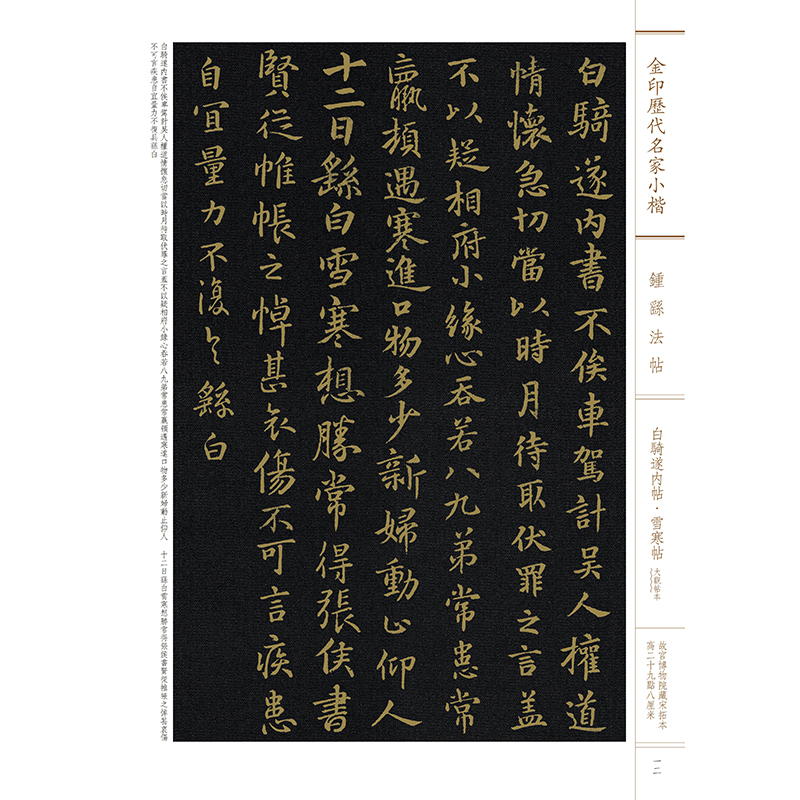 金印歷代名家小楷
鍾繇法帖
白騎遂内帖·雪寒帖
大觀帖本
故宮博物院藏宋拓本
高二十九點八厘米
一二
白騎遂内書不俟車駕計吳人權道
情懷急切當以時月待取伏罪之言盖
不以疑相府小緣心吞若八九弟常患常
羸頓遇寒進口物多少新婦動止仰人
十二日繇白雪寒想勝常得張侯書
賢從帷帳之悼甚哀傷不可言疾患
自宜量力不復具繇白
白騎遂内書不俟車駕計吳人權道情懷急切當以時月待取伏罪之言蓋不以疑相府小緣心吞若八九弟常患常羸頓遇寒進口物多少新婦動止仰人 十二日繇白雪寒想勝常得張侯書賢從帷帳之悼甚哀傷
不可言疾患自宜量力不復具繇白